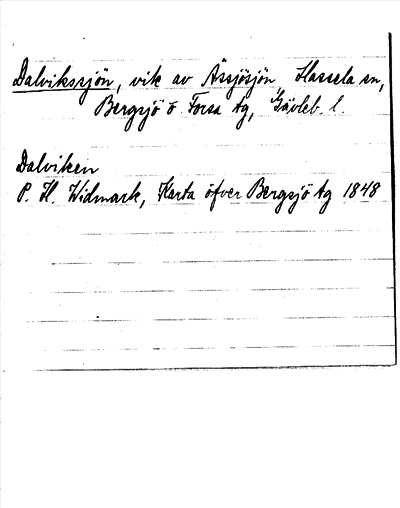 Dalvikssjön, vik av Ässjösjön, Hassela sn,
Bergsjö o Forsa tg, Gävleb. l.
Dalviken
P. H. Widmark, Karta öfver Bergsjö tg 1848